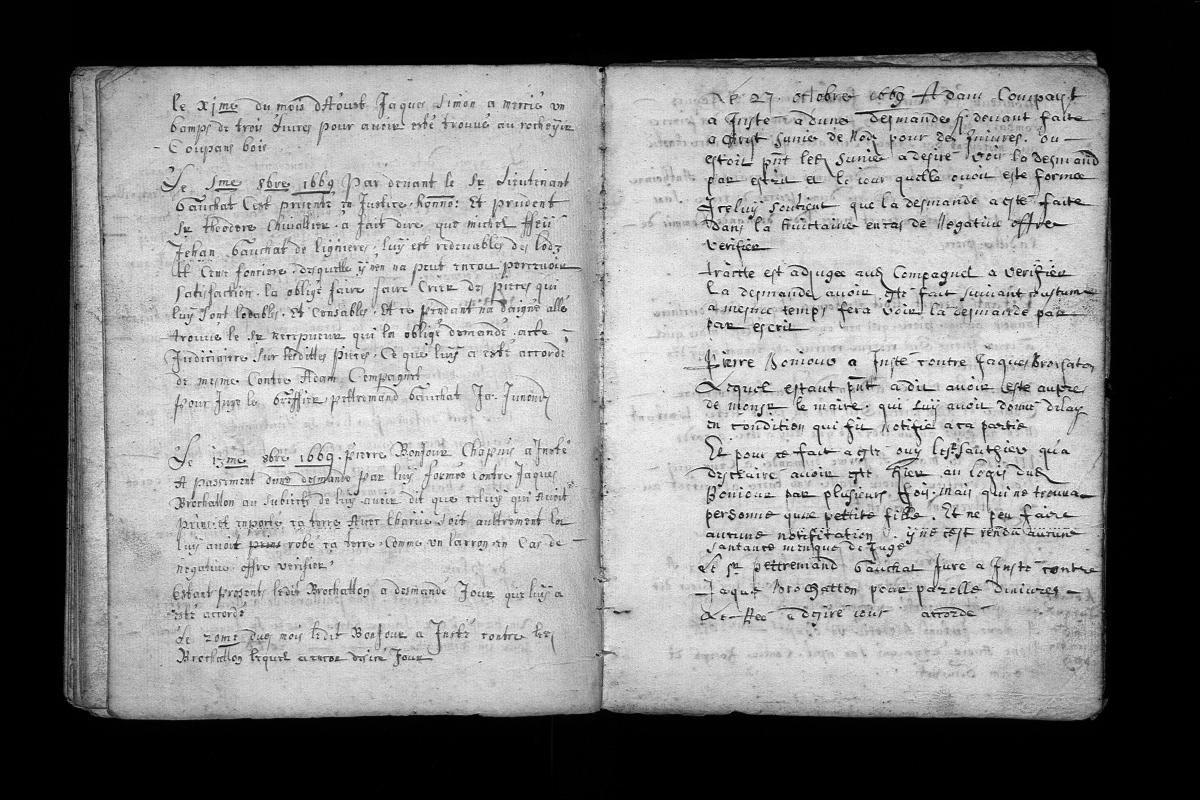 le xjme du mois d'Aoust Jaques Simon a mercié un
bamps de trois livres pour avoir esté trouvé au rocheyir
Coupans bois
Le 5me 8bre 1669 Par devant le Sr Lieutenant
Gauchat c'est presenté en Justice honno: Et prudent
Sr theodore Chivallier a fait dire que michel ffeu
Jehan Gauchat de lignieres luy est redevables des lodz
Et Cense fonciere desquelle il n'en na peut encor percevoir
satisfaction la obligé faire faire Crier des pieces qui
luy sont lodables Et Censables Et ce pendant na daigné allé
trouvé le Sr recepveur qui la obligé demandé acte
Judiciaire sur lesdittes pieces Ce que luy a esté accordé
de mesme Contre Adam Compagnet
pour Juge le Greffier pettremand Gauchat Ja: Junod
Le 13me 8bre 1669 pierre Bonjour Chopius a Insté
A passement dune demande par luy formée contre Jaques
Brochatton au Subiects de luy avoir dit que celuy qui avoit
prins et inporté sa terre Avec Charius soit aultrement lon
luy avoit prins robé sa terre Comme un larron En Cas de
negative offre verifier
Estant present ledit Brochatton a demandé Jour que luy a
esté accordé
Le 20me dud mois ledit Bonjour a Insté contre led
Brochatton lequel encor desiré Jour
Le 27 octobre 1669 Adam Compagt
a Insté a dune desmandes cy devant faite
a Christ Sunie de Nods pour des Iniures ou
estoit pnt led Sunie a desiré voir la desmand
par escrit et le iour quelle avoit esté formée
Iceluy soutient que la desmande a esté faite
dans la encas de Negative offre
verifier
tracte est adjugée aud Compagnet a verifier
la desmande avoir esté fait suivant coustume
a mesme temps fera voir la desmande par
par escrit
Pierre Bonjour a Insté contre Jaques Brochaton
Lequel estant pnt a dit avoir esté aupre
de monsr le maire qui luy avoit donné delay
en condition qui fit notifié a ca partie
Et pour ce fait a esté ouy le Sr Sauthier qu'a
desclairé avoir esté hier au logis dud
Bonjour par plusieurs fois mais qui ne trouva
personne quue pettite fille Et ne peu faire
aucune notification il ne c'est rendu aucune
santance manque de Juge
Le Sr pettremand Gauchat Jure a Insté contre
Jaque Brochatton pour parolle diniures
Le Rée a desiré iour accordé